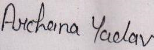 Archana Yadav